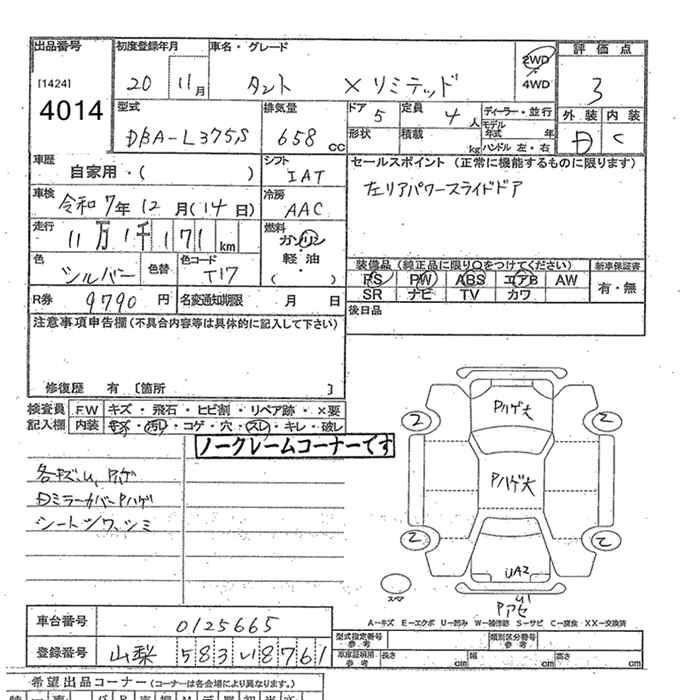 出品番号 初度登録年月 車名・グレード 2WD 評価点
[1424] 20 11月 タント Xリミテッド 4WD 3
4014 型式 排気量 ドア 5 定員 4人 ディーラー・並行 外装 内装
DBA-L375S 658cc 形状 積載 kg モデル年式 年 D C
ハンドル 左・右
車歴 自家用・( ) シフト IAT セールスポイント (正常に機能するものに限ります)
車検 令和7年12月(14日) 冷房 AAC 左リアパワースライドドア
走行 11万1千171km 燃料 ガソリン・軽油 ( )
色 シルバー 色替 色コード T17 装備品(純正品に限り○をつけてください) 新車保証書
PS PW ABS エアB AW 有・無
R券 9790円 名変通知期限 月 日 SR ナビ TV カワ
注意事項申告欄(不具合内容等は具体的に記入して下さい) 後日品
修復歴 有 〔箇所 〕
検査員 F.W キズ・飛石・ヒビ割・リペア跡・×要
記入欄 内装 キズ・汚レ・コゲ・穴・スレ・キレ・破レ
ノークレームコーナーです
Pハゲ大
2 2
各キズ.U.Pハゲ
Pハゲ大
Dミラーカバー Pハゲ
シートシワ、シミ
2 2
UA2
スペア
A-キズ E-エクボ U-凹み W-補修跡 S-サビ C-腐食 XX-交換済
車台番号 0125665
登録番号 山梨 583い8761
型式指定番号 参考 類別区分番号 参考
車庫証明用 参考 長さ cm 幅 cm 高さ cm
希望出品コーナー(コーナーは各会場により異なります。)